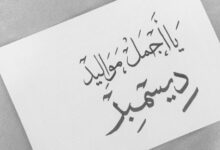 يا أجمل مواليد
ديسمبر